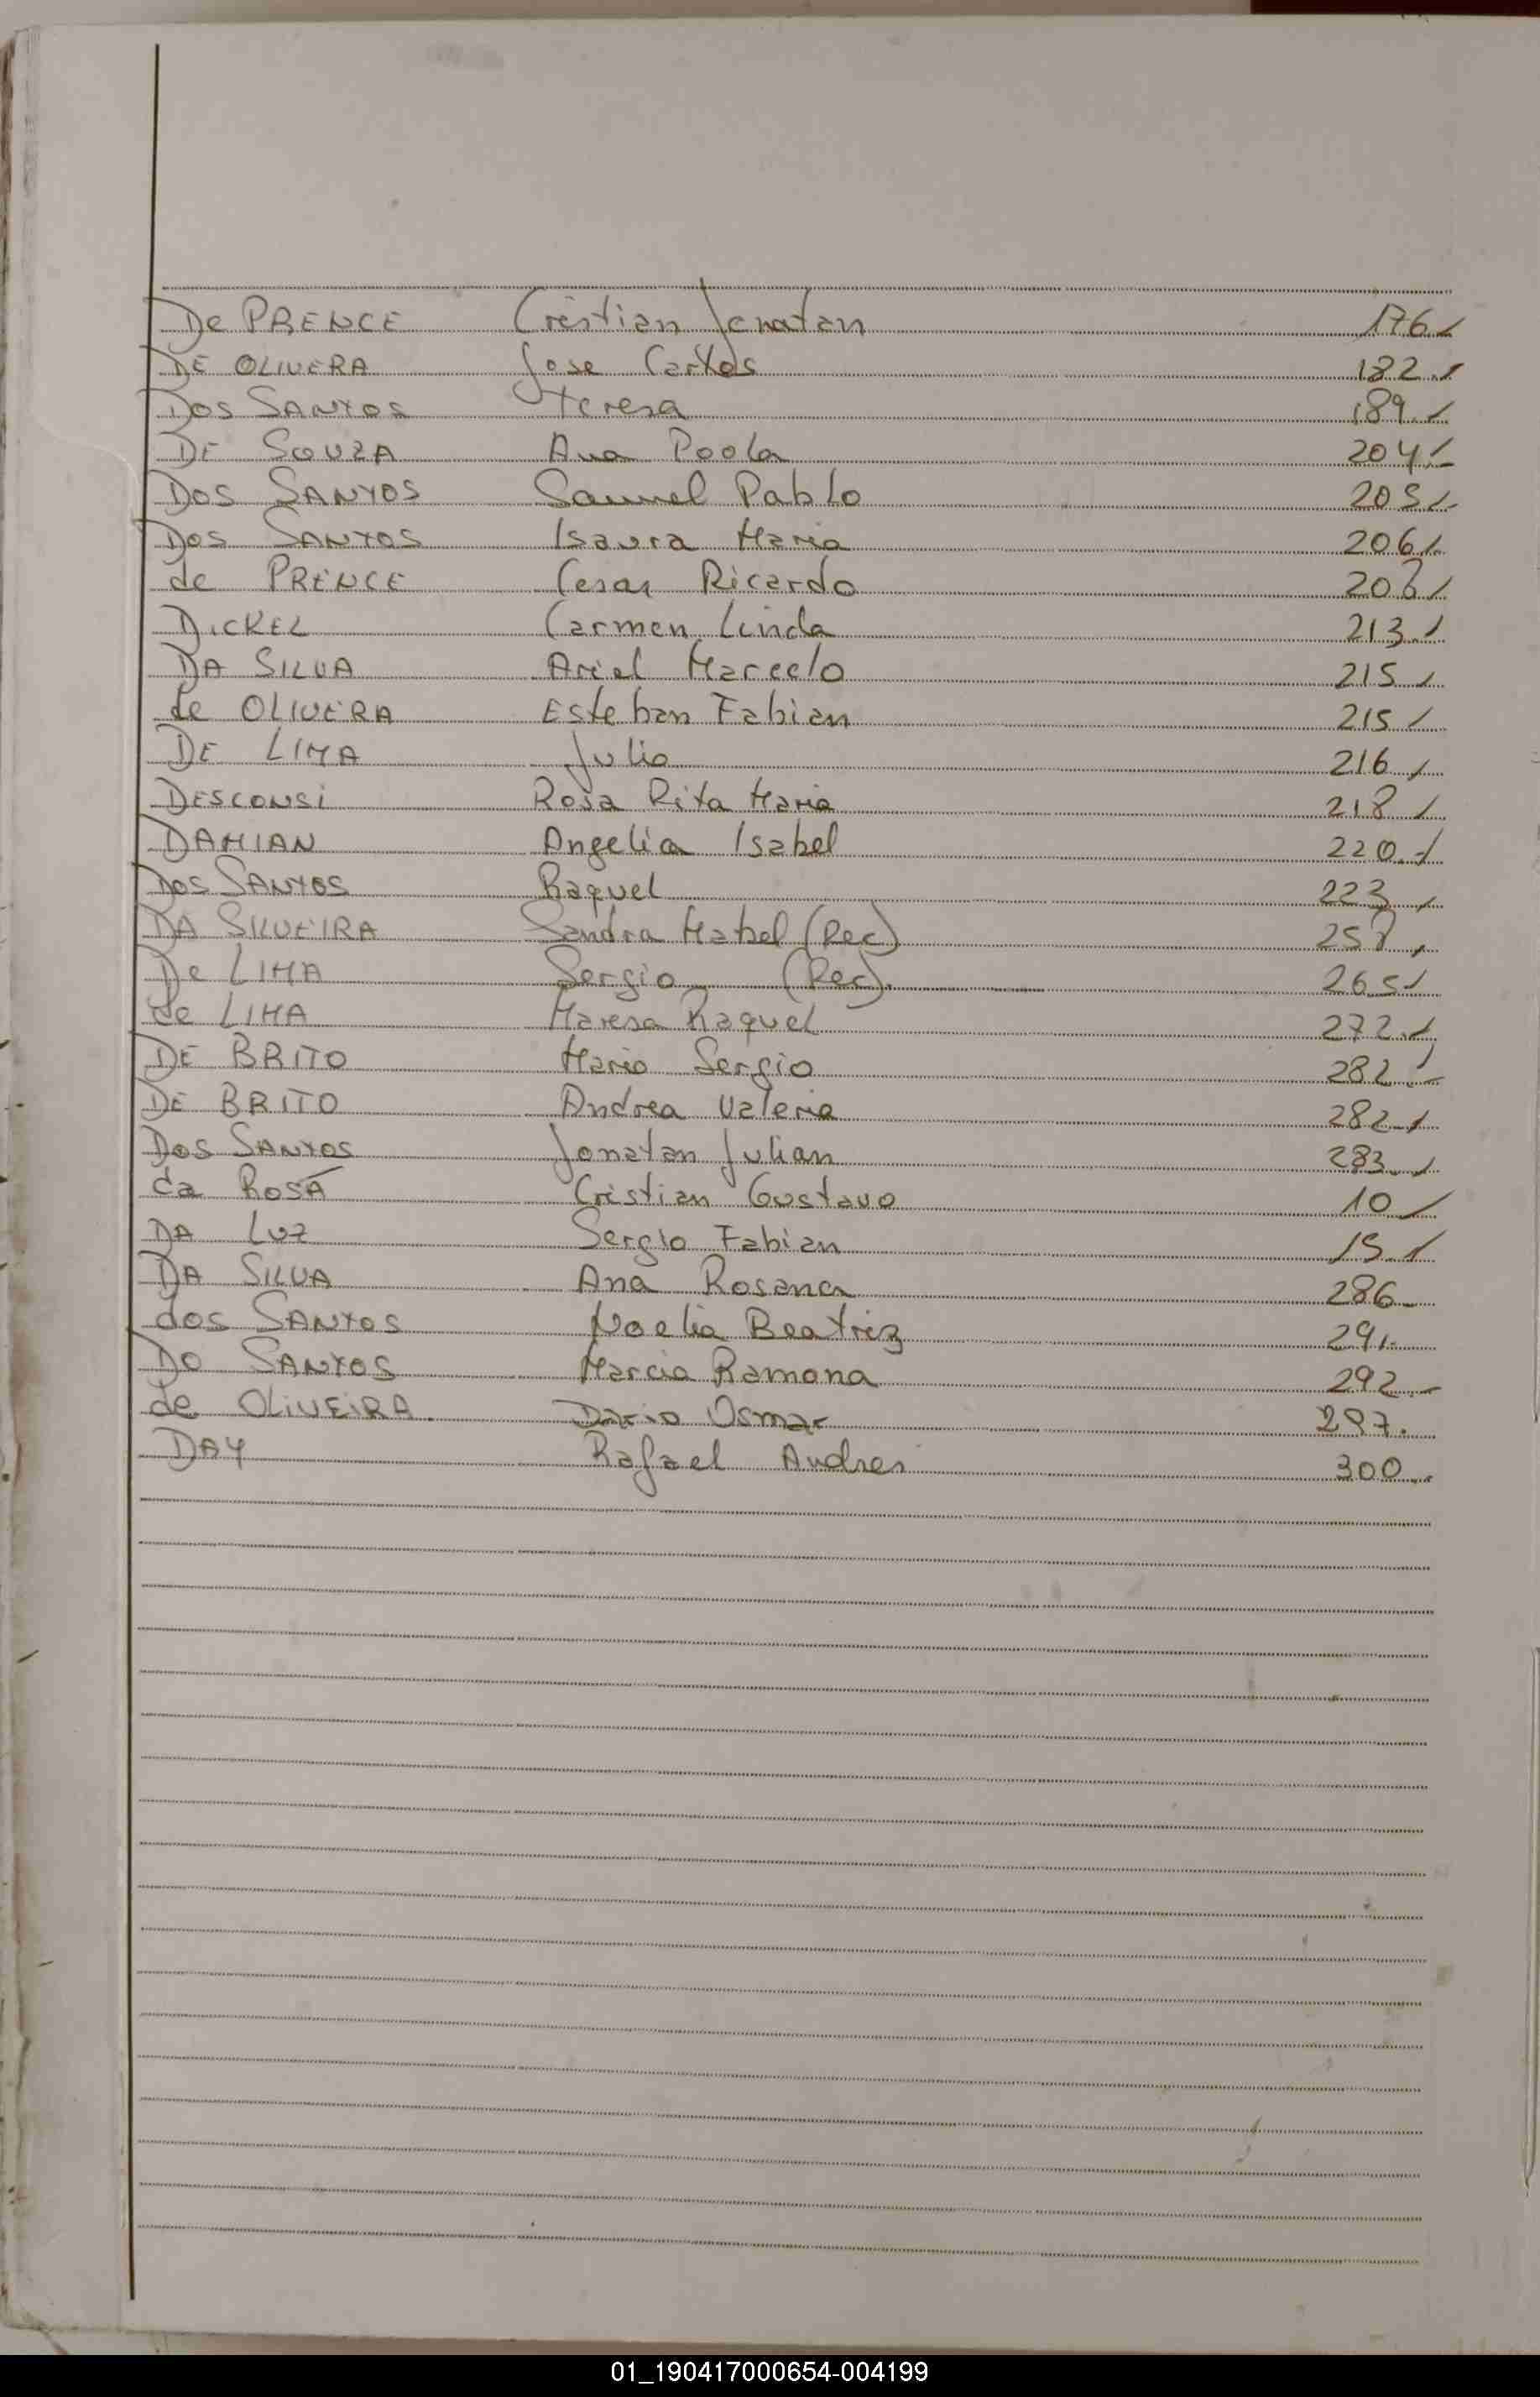 De PRENCE Cristian Jonatan 176
DE OLIVERA Jose Carlos 182
DOS SANTOS Teresa 189
DE SOUZA Ana Poola 204
DOS SANTOS Samuel Pablo 205
DOS SANTOS Isaura Maria 206
de PRENCE Cesar Ricardo 206
DICKEL Carmen Linda 213
DA SILVA Ariel Marcelo 215
de OLIVERA Esteban Fabian 215
DE LIMA Julio 216
DESCONSI Rosa Rita Maria 218
DAMIAN Angelia Isabel 220
DOS SANTOS Raquel 223
DA SILVEIRA Sandra Mabel (Rec) 258
De LIMA Sergio (Rec). 265
de LIMA Maresa Raquel 272
DE BRITO Mario Sergio 282
DE BRITO Andrea Valeria 282
DOS SANTOS Jonatan Julian 283
da ROSA Cristian Gustavo 10
DA LUZ Sergio Fabian 15
DA SILVA Ana Rosana 286
dos SANTOS Noelia Beatriz 291
DO SANTOS Marcia Ramona 292
de OLIVEIRA Dario Osmar 297.
DAY Rafael Andres 300
01_190417000654-004199